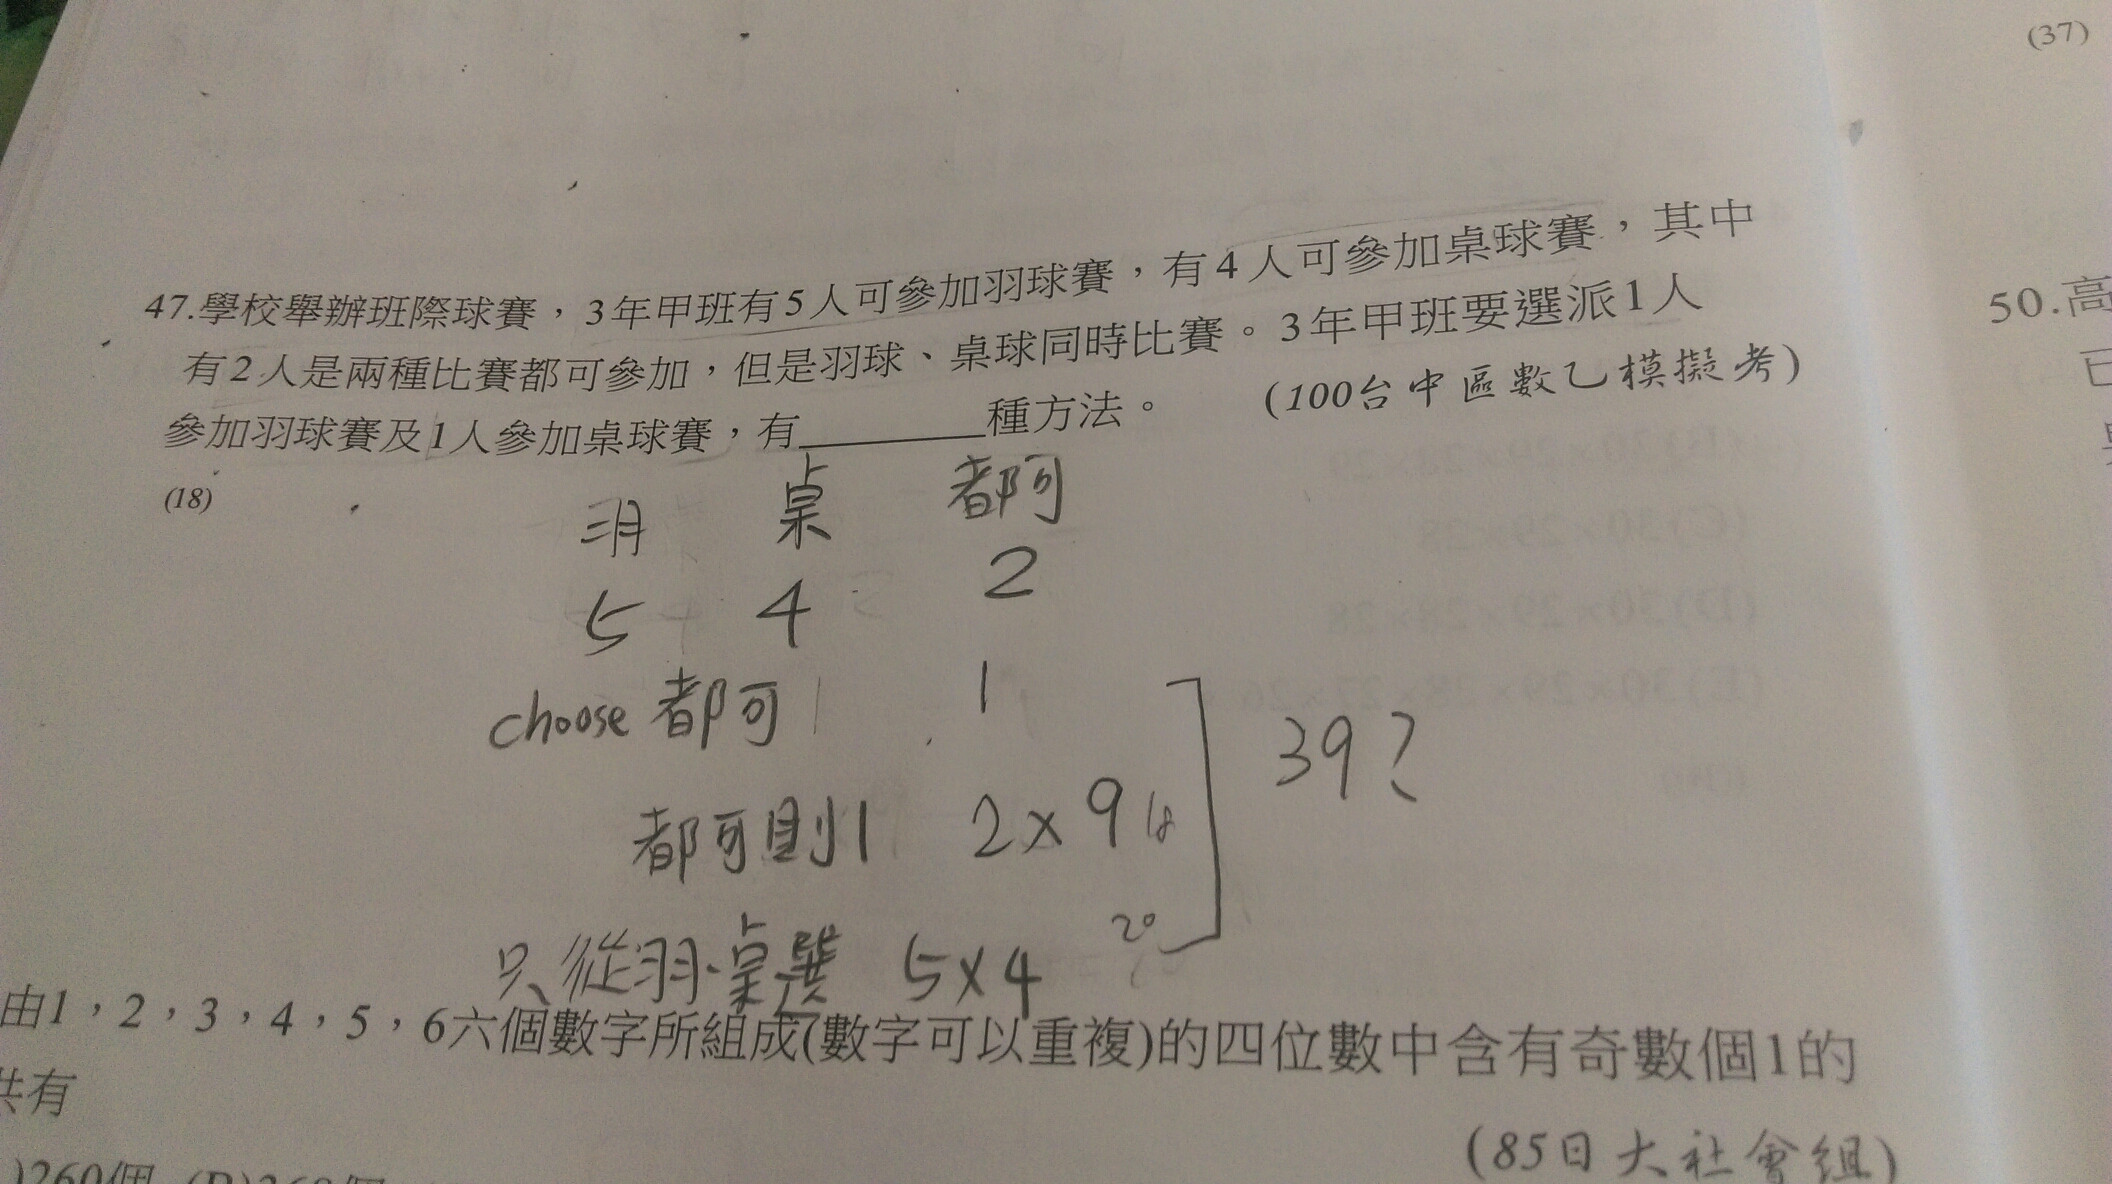 (37)
47.學校舉辦班際球賽，3年甲班有5人可參加羽球賽，有4人可參加桌球賽，其中
有2人是兩種比賽都可參加，但是羽球、桌球同時比賽。3年甲班要選派1人
參加羽球賽及1人參加桌球賽，有________種方法。 (100台中區數乙模擬考)
(18)
羽 桌 都可
5 4 2
choose 都可 1 1
都可則1 2×9 18
39?
只從羽.桌選 5×4 20
由1，2，3，4，5，6六個數字所組成(數字可以重複)的四位數中含有奇數個1的
共有
(85日大社會組)
)260個
50.高